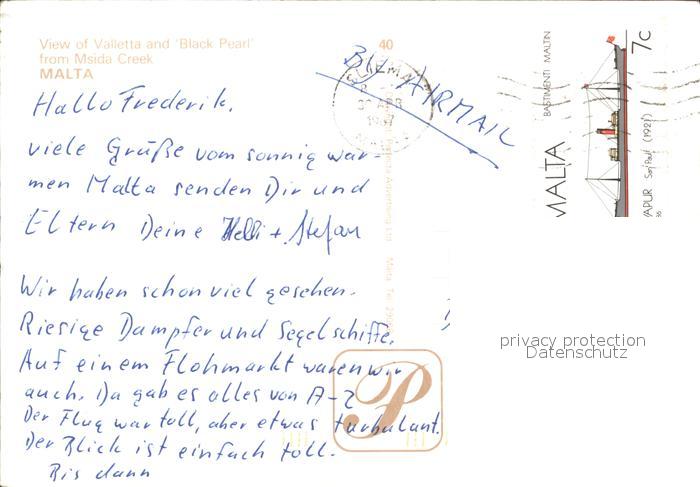 View of Valletta and 'Black Pearl'
from Msida Creek
MALTA
40
By AIRMAIL
SLIEMA
30 APR
MALTA
BASTIMENTI MALTIN
7c
VAPUR San Paul (1921)
Hallo Frederik,
viele Grüße vom sonnig war-
men Malta senden Dir und
Eltern Deine Helli + Stefan
Wir haben schon viel gesehen.
Riesige Dampfer und Segelschiffe.
Auf einem Flohmarkt waren wir
auch. Da gab es alles von A-Z
Der Flug war toll, aber etwas turbulant.
Der Blick ist einfach toll.
Bis dann
Malta. Tel:
P
privacy protection
Datenschutz